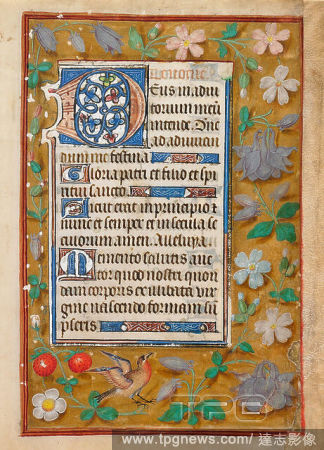 Deus in adiu
toriū meū
intende. Dne
ad adiuuan
dum me festina
Gloria patri et filio et spi
ritui sancto
Sicut erat in principio et
nunc et semper et in secula se
culorum amen. Alleluya
Memento salutis auc
tor quod nostri quon
dam corporis ex illibata vir
gine nascendo formam su
pseris
TPG
www.tpgnews.com / 達志影像